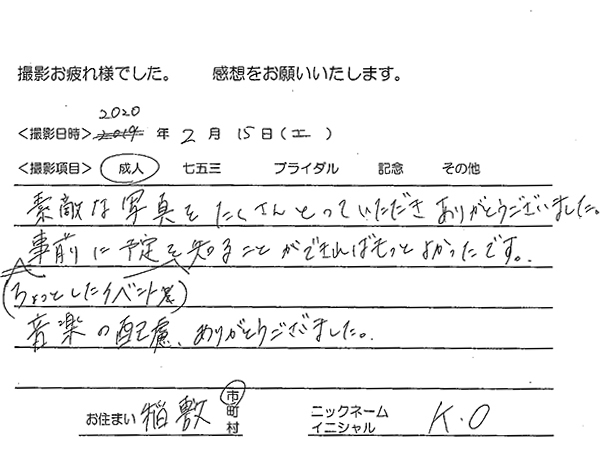 撮影お疲れ様でした。 感想をお願いいたします。
2020
<撮影日時> 2019 年 2 月 15 日 (土)
<撮影項目> 成人 七五三 ブライダル 記念 その他
素敵な写真をたくさんとっていただきありがとうございました。
事前に予定を知ることができればもっとよかったです。
(ちょっとしたイベント等)
音楽の配慮、ありがとうございました。
お住まい 稲敷 市 町 村 ニックネーム イニシャル K.O